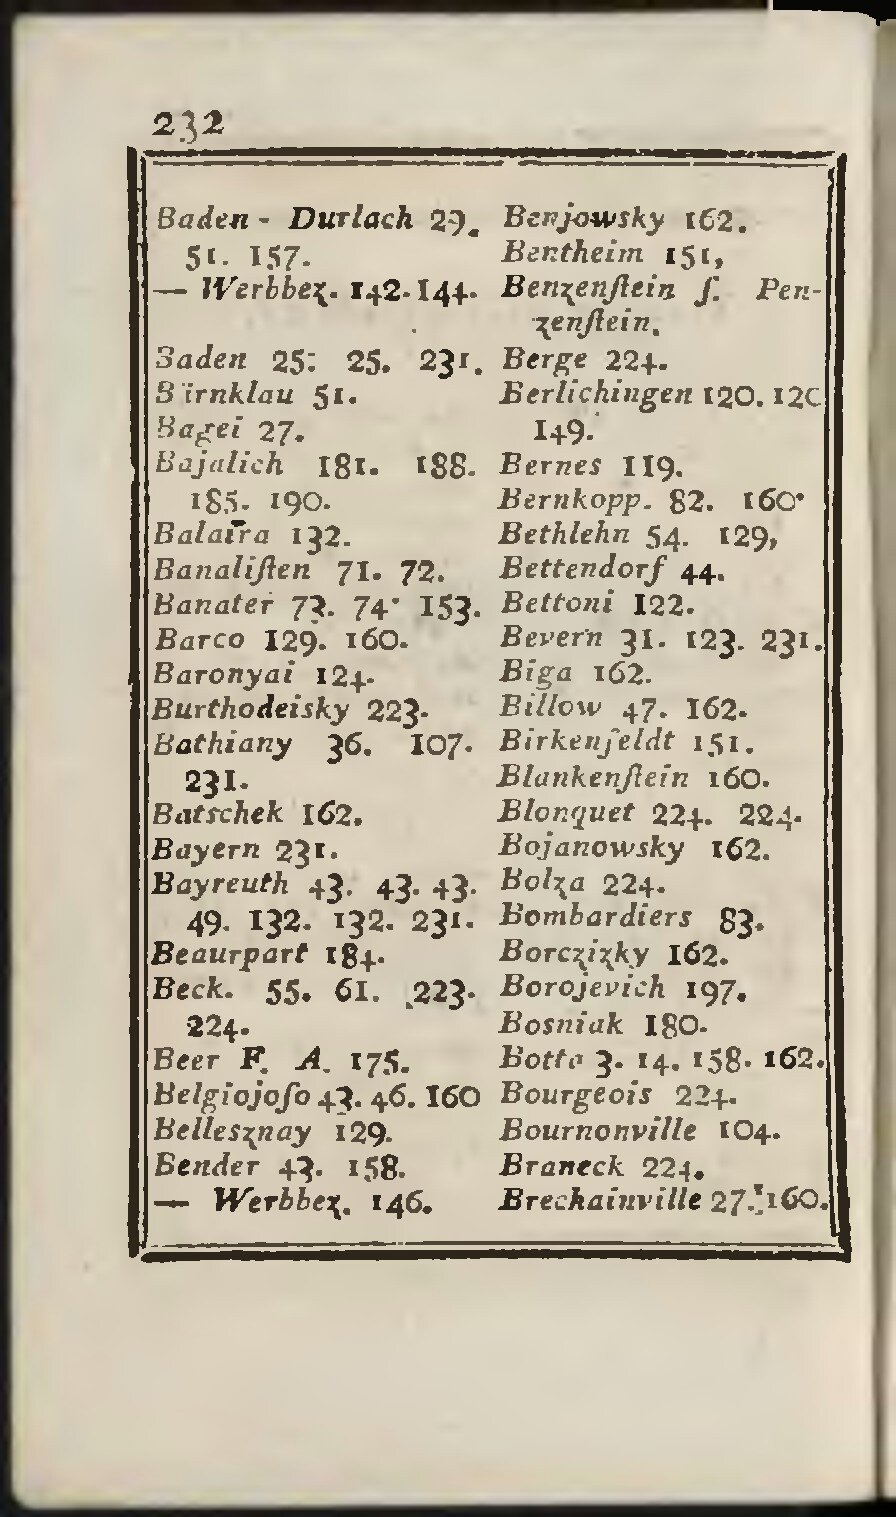 232
Baden - Durlach 29.
51. 157.
— Werbbez. 142. 144.
Baden 25: 25. 231.
Bärnklau 51.
Bagei 27.
Bajalich 181. 188.
185. 190.
Balaira 132.
Banaliſten 71. 72.
Banater 73. 74. 153.
Barco 129. 160.
Baronyai 124.
Burthodeisky 223.
Bathiany 36. 107.
231.
Batschek 162.
Bayern 231.
Bayreuth 43. 43. 43.
49. 132. 132. 231.
Beaurpart 184.
Beck. 55. 61. 223.
224.
Beer F. A. 175.
Belgiojoſo 43. 46. 160
Bellesznay 129.
Bender 43. 158.
— Werbbez. 146.
Benjowsky 162.
Bentheim 151,
Benzenſtein ſ. Pen-
zenſtein.
Berge 224.
Berlichingen 120. 120
149.
Bernes 119.
Bernkopp. 82. 160.
Bethlehn 54. 129,
Bettendorf 44.
Bettoni 122.
Bevern 31. 123. 231.
Biga 162.
Billow 47. 162.
Birkenfeldt 151.
Blankenſtein 160.
Blonquet 224. 224.
Bojanowsky 162.
Bolza 224.
Bombardiers 83.
Borczizky 162.
Borojevich 197.
Bosniak 180.
Botta 3. 14. 158. 162.
Bourgeois 224.
Bournonville 104.
Braneck 224.
Brechainville 27. 160.